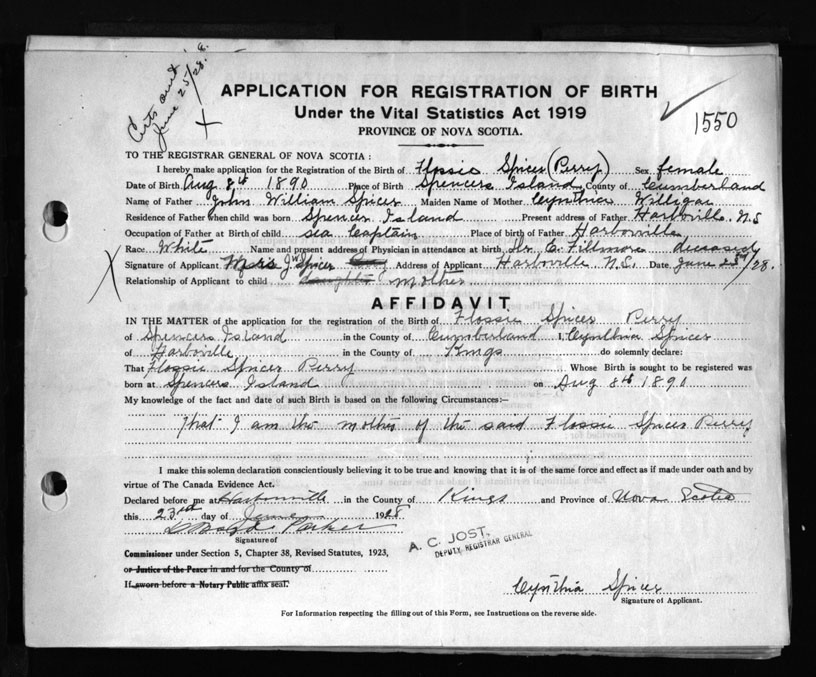 Certs and
June 25/28
1550
APPLICATION FOR REGISTRATION OF BIRTH
Under the Vital Statistics Act 1919
PROVINCE OF NOVA SCOTIA.
TO THE REGISTRAR GENERAL OF NOVA SCOTIA:
I hereby make application for the Registration of the Birth of Flossie Spicer (Perry) Sex female
Date of Birth Aug 8th 1890 Place of Birth Spencers Island County of Cumberland
Name of Father John William Spicer Maiden Name of Mother Cynthia
Residence of Father when child was born Spencer Island Present address of Father Harboville N.S
Occupation of Father at Birth of child sea Captain Place of birth of Father Harborville
Race White Name and present address of Physician in attendance at birth Dr. C. Fillmore deceased
Signature of Applicant Mrs J W Spicer Address of Applicant Harboville N.S. Date June 25th/28.
Relationship of Applicant to child daughter mother
AFFIDAVIT
IN THE MATTER of the application for the registration of the Birth of Flossie Spicer Perry
of Spencers Island in the County of Cumberland I, Cynthia Spicer
of Harboville in the County of Kings do solemnly declare:
That Flossie Spicer Perry Whose Birth is sought to be registered was
born at Spencers Island on Aug 8th 1890
My knowledge of the fact and date of such Birth is based on the following Circumstances:—
That I am the mother of the said Flossie Spicer Perry
I make this solemn declaration conscientiously believing it to be true and knowing that it is of the same force and effect as if made under oath and by
virtue of The Canada Evidence Act.
Declared before me at Harborville in the County of Kings and Province of Nova Scotia
this 23rd day of June 1928
Parker
Signature of
Commissioner under Section 5, Chapter 38, Revised Statutes, 1923,
or Justice of the Peace in and for the County of
If sworn before a Notary Public affix seal.
A. C. JOST,
DEPUTY REGISTRAR GENERAL
Cynthia Spicer
Signature of Applicant.
For Information respecting the filling out of this Form, see Instructions on the reverse side.